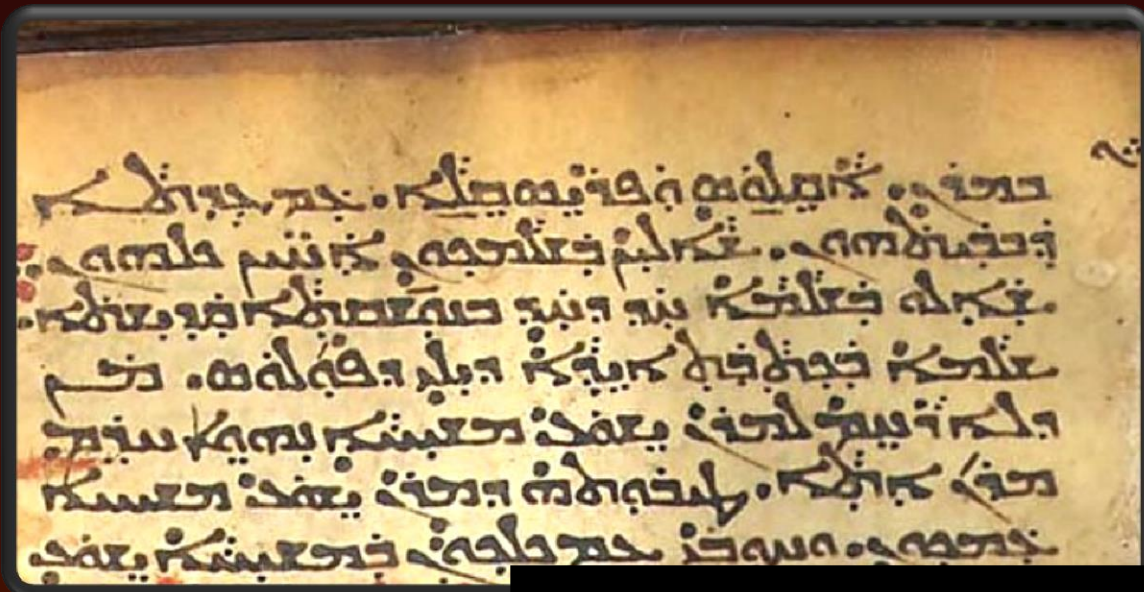 ܒܡܪܢ. ܐܩܠܘܣ ܘܦܪܝܣܩܠܐ. ܥܡ ܥܕܬܐ
ܕܒܒܝܬܗܘܢ. ܫܐܠܝܢ ܒܫܠܡܟܘܢ ܐܚܝܢ ܟܠܗܘܢ.
ܫܐܠܘ ܒܫܠܡܐ ܚܕ ܕܚܕ ܒܢܘܫܩܬܐ ܩܕܝܫܬܐ.
ܫܠܡܐ ܒܟܬܒܬ ܐܝܕܐ ܕܝܠܝ ܕܦܘܠܘܣ. ܡܢ
ܕܠܐ ܪܚܡ ܠܡܪܢ ܝܫܘܥ ܡܫܝܚܐ ܢܗܘܐ ܚܪܡ
ܡܪܢ ܐܬܐ. ܛܝܒܘܬܗ ܕܡܪܢ ܝܫܘܥ ܡܫܝܚܐ
ܥܡܟܘܢ. ܘܚܘܒܝ ܥܡ ܟܠܟܘܢ ܒܡܫܝܚܐ ܝܫܘܥ